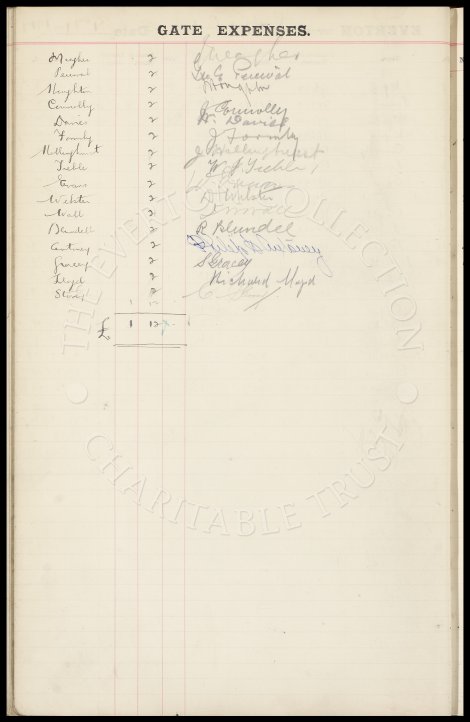 GATE EXPENSES.
Meagher 2 J Meagher
Percival 2 Geo E Percival
Houghton 2 Houghton
Connolly 2 J Connolly
Davies 2 W. Davies
Formby 2 J Formby
Hollinghurst 2 J Hollinghurst
Tickle 2 W J Tickle
Evans 2
Webster 2 D Webster
Wall 2
Blundell 2 R Blundell
2
Gracey 2 S Gracey
Lloyd 2 Richard Lloyd
2
£ 1 12
THE EVERTON COLLECTION
CHARITABLE TRUST